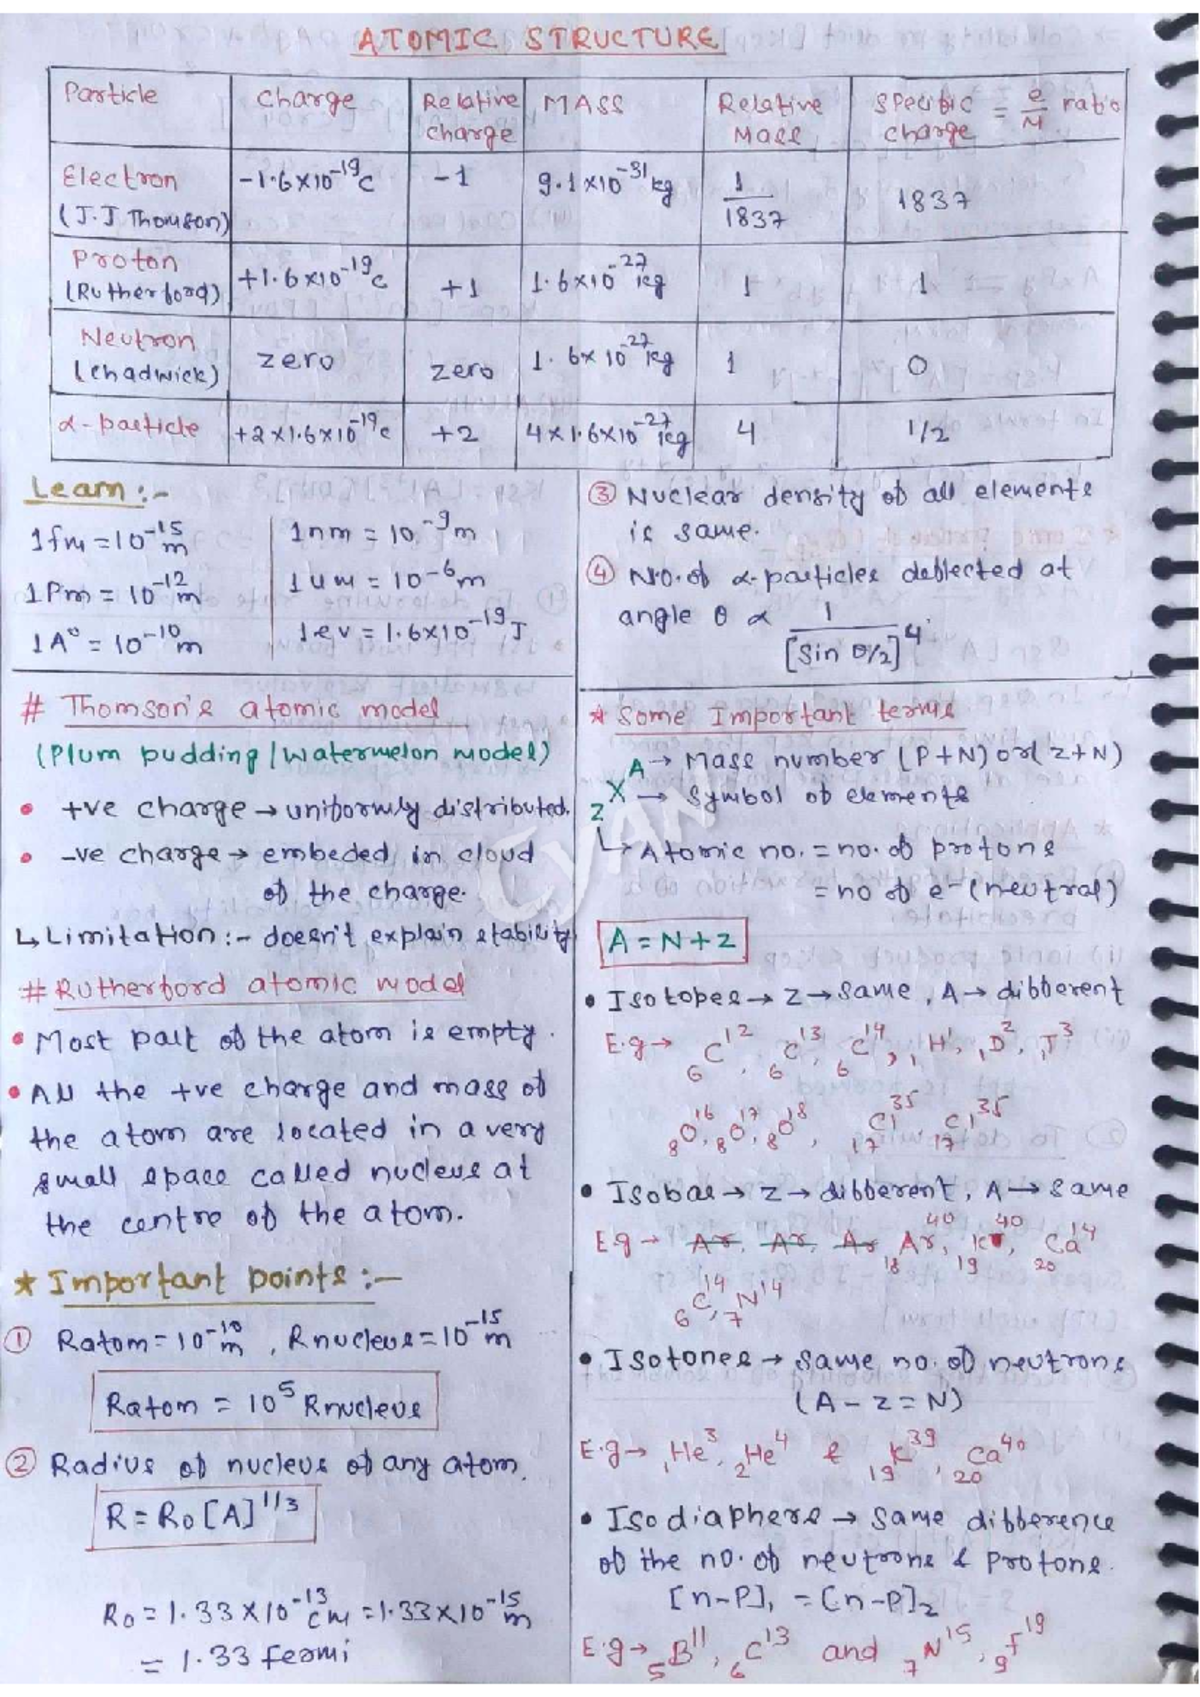 ATOMIC STRUCTURE
Particle | Charge | Relative charge | MASS | Relative Mass | Specific charge = e/M ratio
Electron (J.J Thomson) | -1.6×10⁻¹⁹c | -1 | 9.1×10⁻³¹kg | 1/1837 | 1837
Proton (Rutherford) | +1.6×10⁻¹⁹c | +1 | 1.6×10⁻²⁷kg | 1 | 1
Neutron (Chadwick) | zero | zero | 1.6×10⁻²⁷kg | 1 | 0
α-particle | +2×1.6×10⁻¹⁹c | +2 | 4×1.6×10⁻²⁷kg | 4 | 1/2
Learn :-
1fm = 10⁻¹⁵m
1Pm = 10⁻¹²m
1A° = 10⁻¹⁰m
1nm = 10⁻⁹m
1um = 10⁻⁶m
1ev = 1.6×10⁻¹⁹J
# Thomson's atomic model
(Plum pudding/watermelon model)
• +ve charge → uniformly distributed.
• -ve charge → embeded in cloud
of the charge.
↳ Limitation :- doesn't explain stability
# Rutherford atomic model
• Most part of the atom is empty.
• All the +ve charge and mass of
the atom are located in a very
small space called nucleus at
the centre of the atom.
* Important points :-
① Ratom = 10⁻¹⁰m, Rnucleus = 10⁻¹⁵m
Ratom = 10⁵ Rnucleus
② Radius of nucleus of any atom.
R = R₀[A]¹/³
R₀ = 1.33×10⁻¹³cm = 1.33×10⁻¹⁵m
= 1.33 Fermi
③ Nuclear density of all elements
is same.
④ No. of α-particles deflected at
angle θ ∝ 1/[sin θ/2]⁴
* Some Important terms
A → Mass number (P+N) or (Z+N)
X → Symbol of elements
Z
↳ Atomic no. = no. of protons
= no of e⁻ (neutral)
A = N + Z
• Isotopes → Z → same, A → different
E.g → ₆C¹², ₆C¹³, ₆C¹⁴, ₁H¹, ₁D², ₁T³
₈O¹⁶, ₈O¹⁷, ₈O¹⁸, ₁₇Cl³⁵, ₁₇Cl³⁵
• Isobar → Z → different, A → same
E.g → Ar, Ar, Ar ₁₈Ar⁴⁰, ₁₉K⁴⁰, ₂₀Ca¹⁴
₆C¹⁴, ₇N¹⁴
• Isotones → same no. of neutrons
(A - Z = N)
E.g → ₁He³, ₂He⁴ & ₁₉K³⁹, ₂₀Ca⁴⁰
• Isodiaphers → same difference
of the no. of neutrons & protons.
[n-P]₁ = [n-P]₂
E.g → ₅B¹¹, ₆C¹³ and ₇N¹⁵, ₉F¹⁹
CYAN